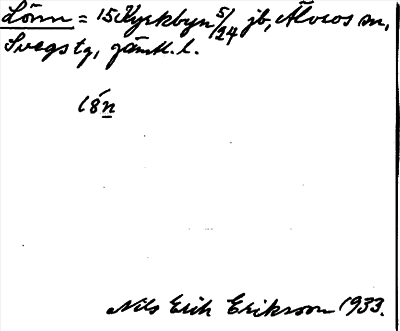 Lönn = 15 Kyrkbyn 5/24 jb, Älvros sn,
Svegs tg, Jämtl. l.
18n
Nils Erik Eriksson 1933.